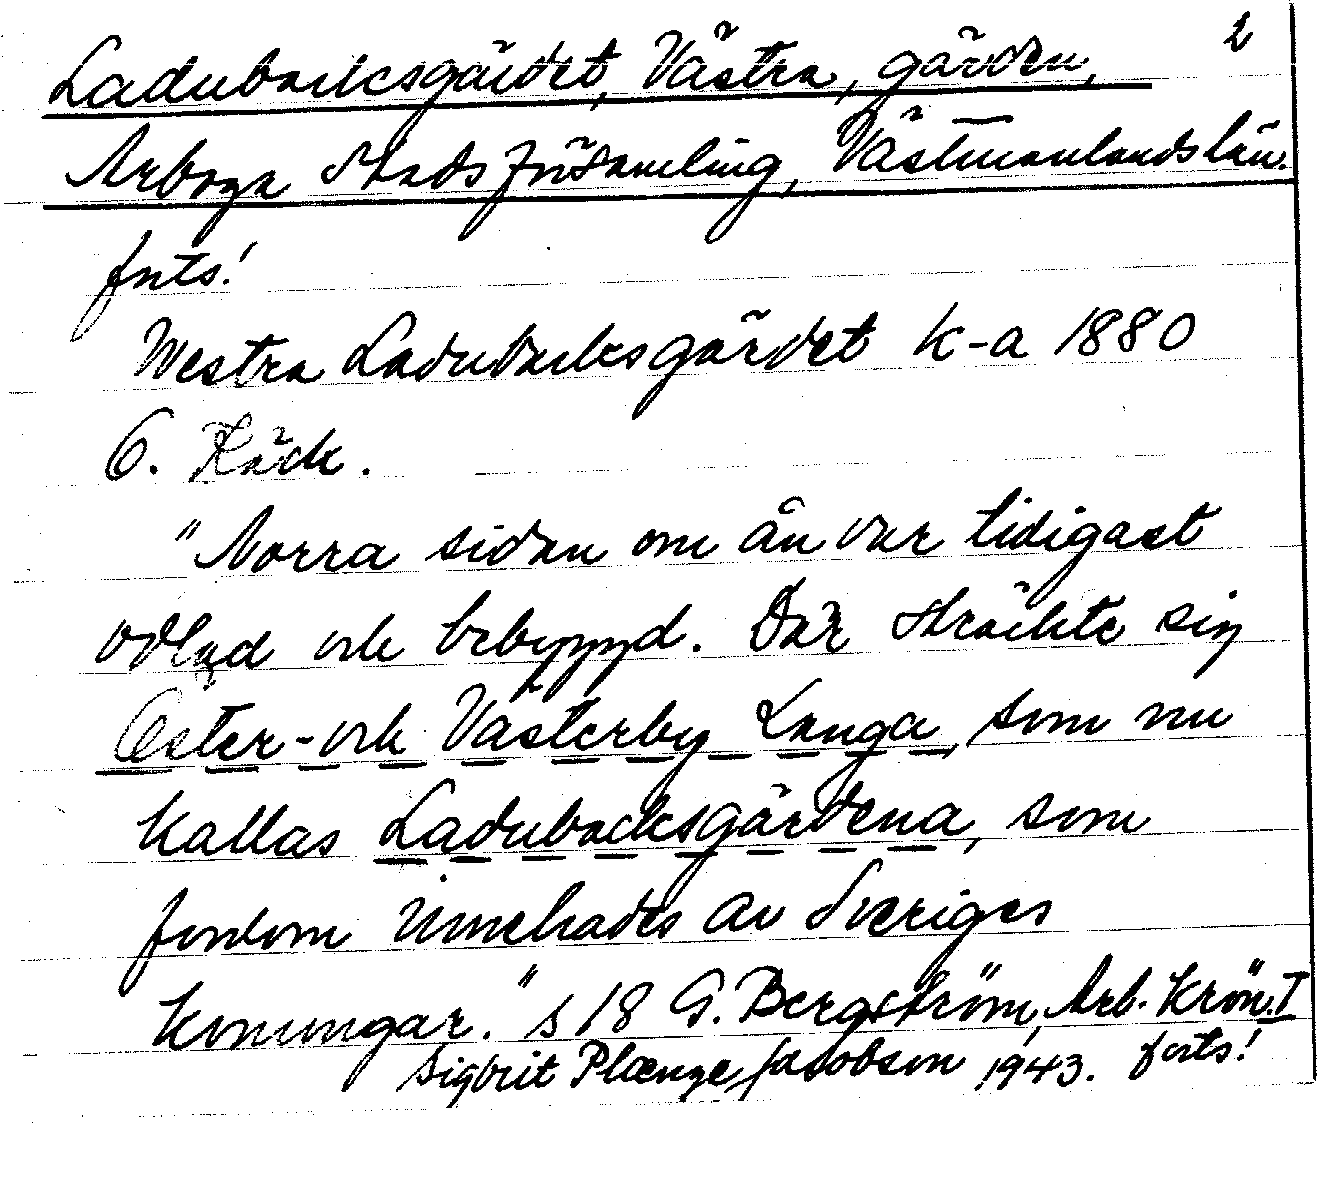 2
Ladubacksgärdet, Västra, gärden,
Arboga Stadsförsamling, Västmanlands län.
forts!
Westra Ladubacksgärdet k-a 1880
G. Käck.
"Norra sidan om ån var tidigast
odlad och bebyggd. Där sträckte sig
Öster- och Västerby Langa, som nu
kallas Ladubacksgärdena, som
fordom innehades av Sveriges
konungar." s 18 G. Bergström, Arb. Krön. I
Sigbrit Plænge Jacobson 1943. forts!